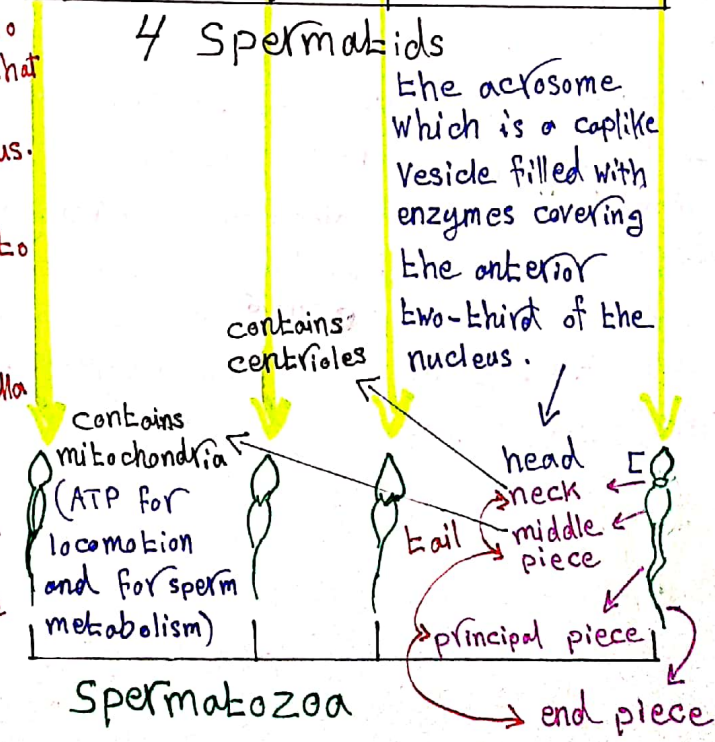 4 Spermatids
the acrosome
which is a caplike
vesicle filled with
enzymes covering
the anterior
two-third of the
nucleus.
contains
centrioles
contains
mitochondria
(ATP for
locomotion
and for sperm
metabolism)
head
neck
middle
piece
tail
principal piece
end piece
Spermatozoa
o
hat
us.
to
lla